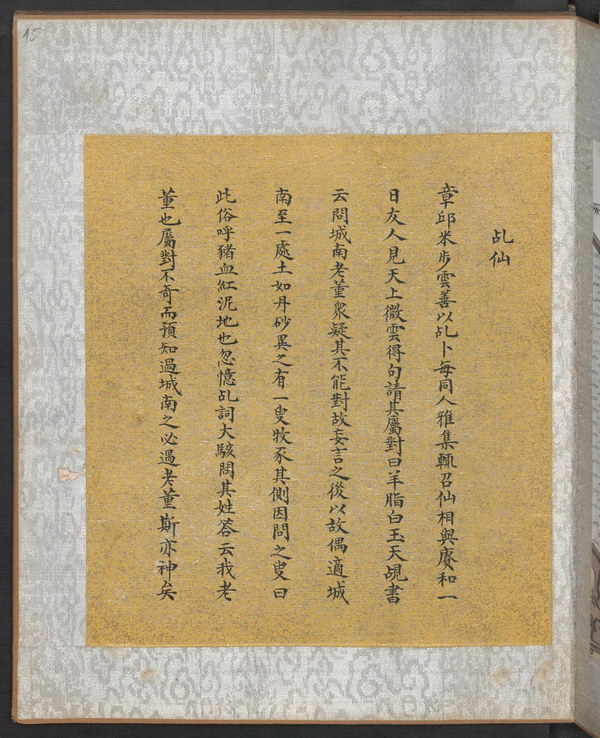 15
乩仙
章邱米步雲善以乩卜每同人雅集輒召仙相與賡和一
日友人見天上微雲得句請其屬對曰羊脂白玉天覘書
云問城南老董衆疑其不能對故妄言之後以故偶適城
南至一處土如丹砂異之有一叟牧豕其側因問之叟曰
此俗呼猪血紅泥地也忽憶乩詞大駭問其姓答云我老
董也屬對不奇而預知過城南之必遇老董斯亦神矣